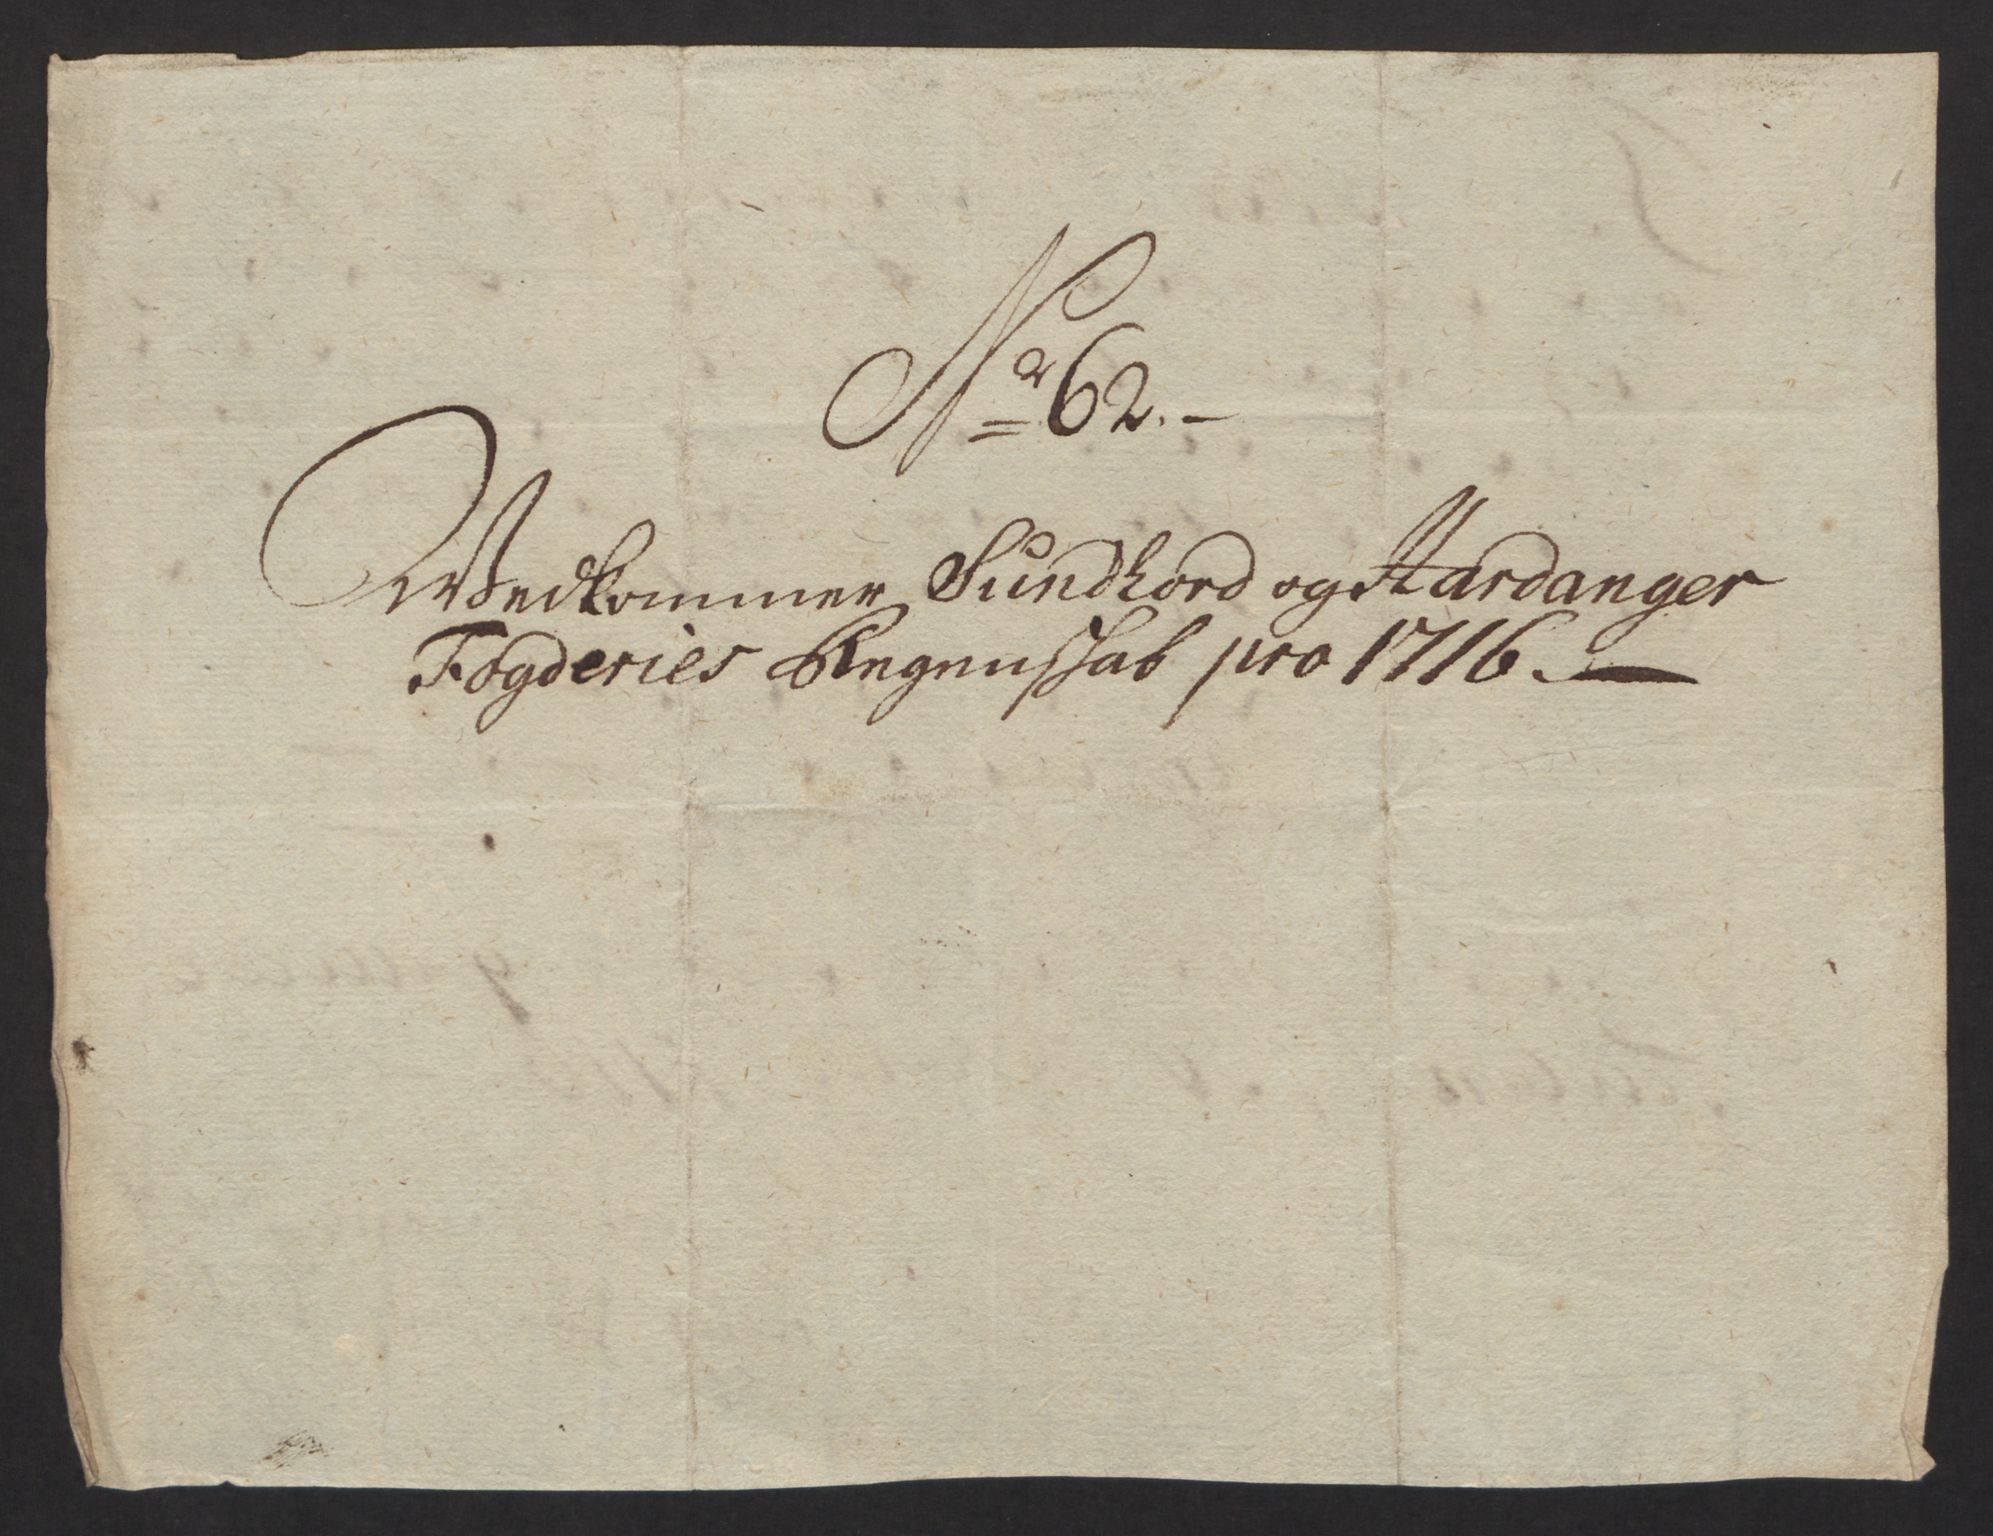 No 62.
Wedkommer Sundhord og Hardanger
Fogderies Regenskab pro 1716.